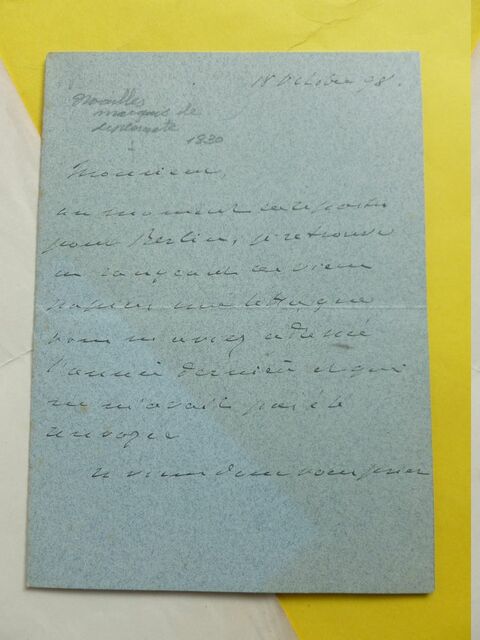 18 octobre 98.
Noailles
marquis de
diplomate
1830
Monsieur,
au moment de repartir
pour Berlin, je retrouve
en rangeant de vieux
papiers une lettre que
vous m'avez adressé
l'année dernière et qui
ne m'avait pas été
envoyée
Je viens donc vous